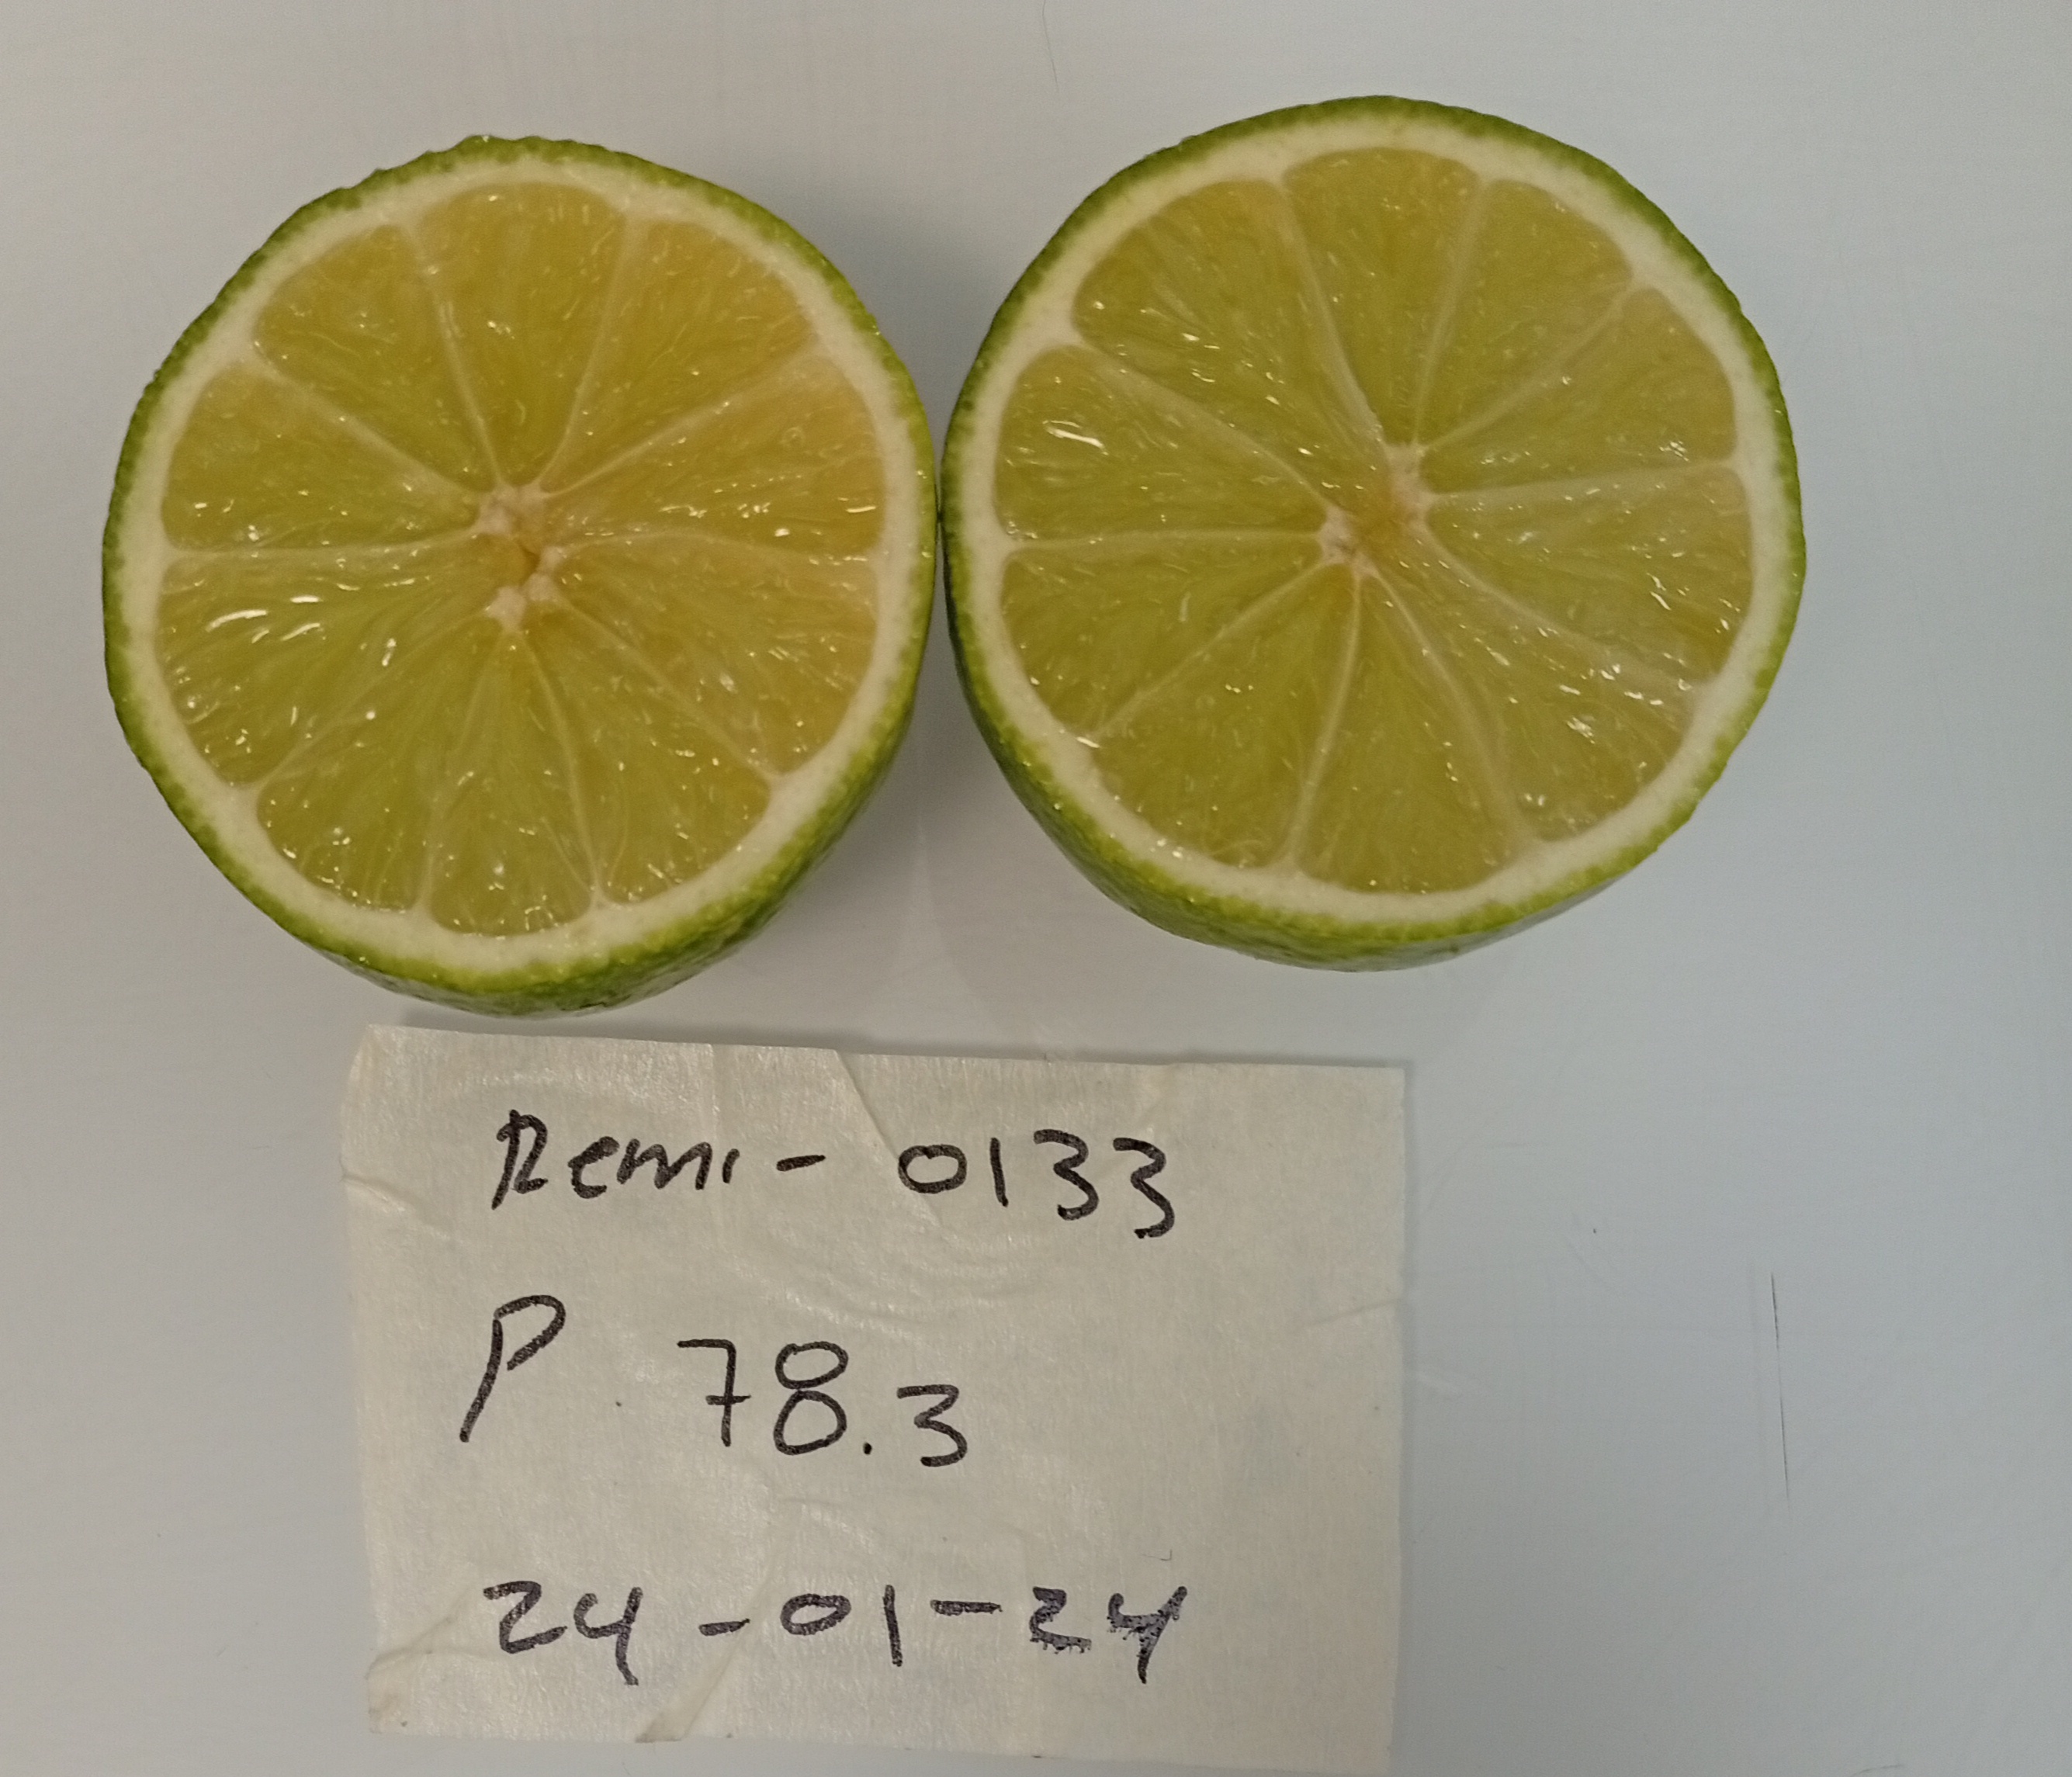 Remi - 0133
P 78.3
24-01-24